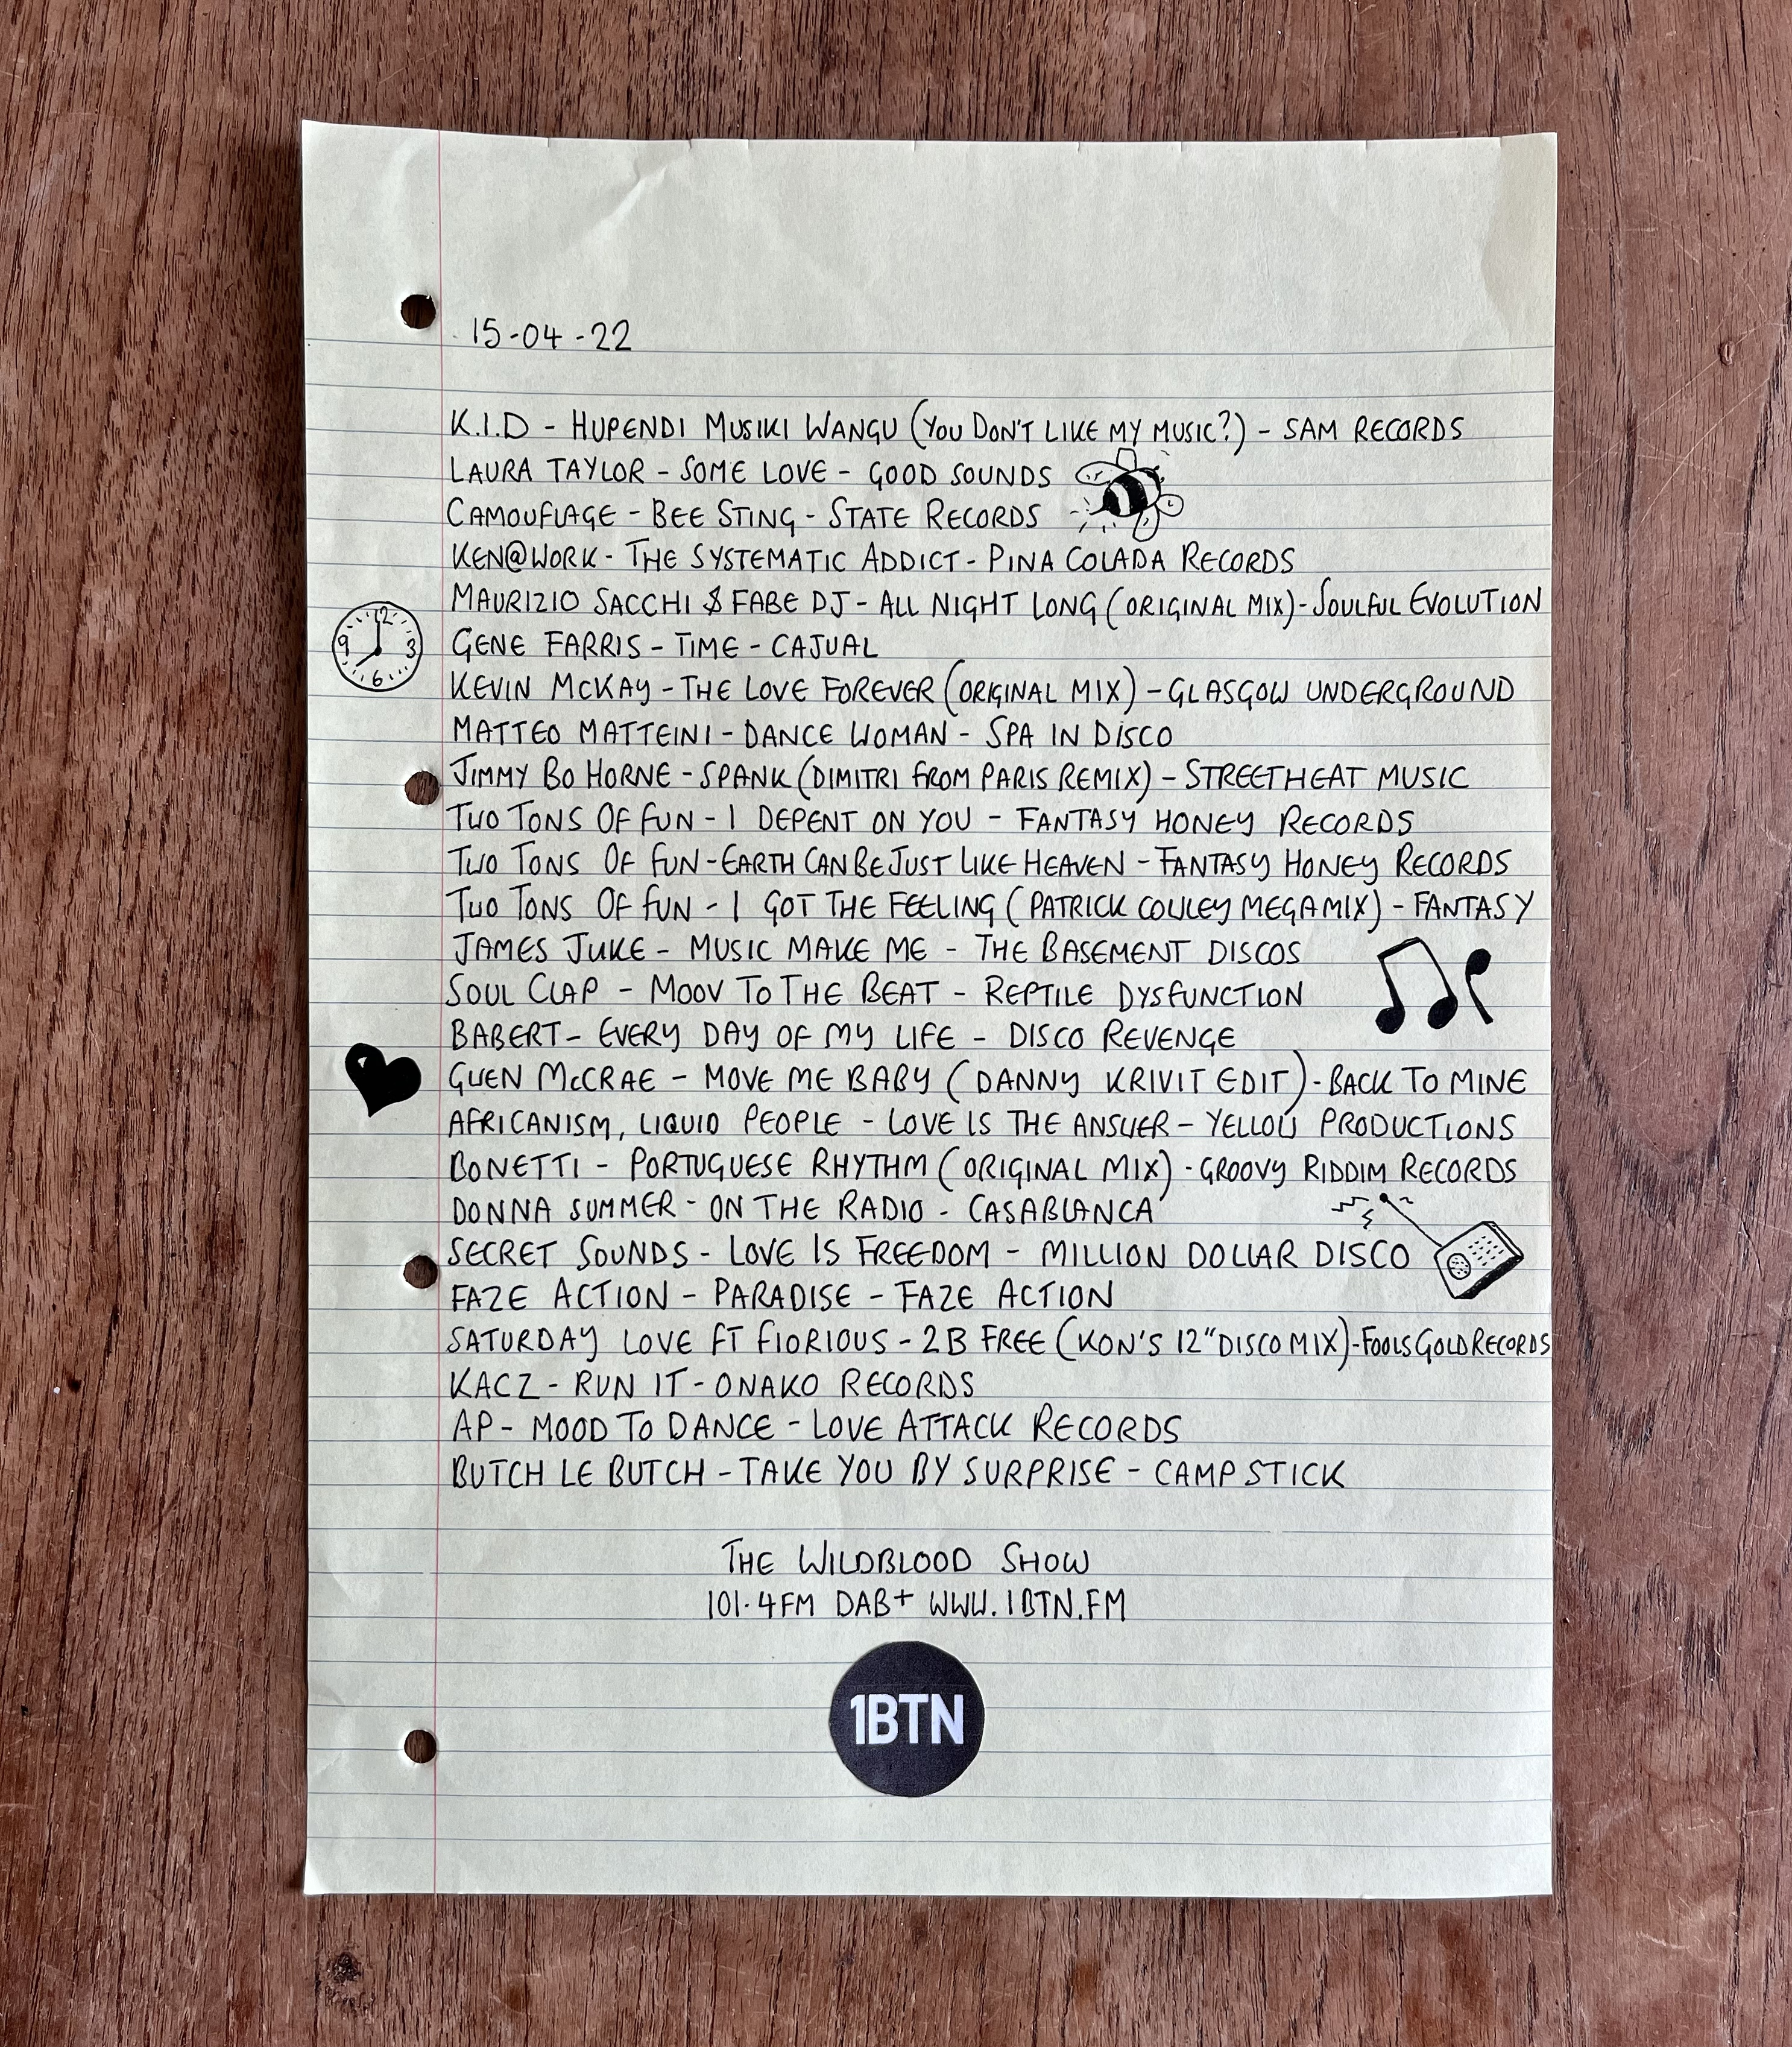 15-04-22
K.I.D - HUPENDI MUSIKI WANGU (YOU DON'T LIKE MY MUSIC?) - SAM RECORDS
LAURA TAYLOR - SOME LOVE - GOOD SOUNDS
CAMOUFLAGE - BEE STING - STATE RECORDS
KEN@WORK - THE SYSTEMATIC ADDICT - PINA COLADA RECORDS
MAURIZIO SACCHI & FABE DJ - ALL NIGHT LONG (ORIGINAL MIX) - SOULFUL EVOLUTION
12
9 3
6
GENE FARRIS - TIME - CAJUAL
KEVIN MCKAY - THE LOVE FOREVER (ORIGINAL MIX) - GLASGOW UNDERGROUND
MATTEO MATTEINI - DANCE WOMAN - SPA IN DISCO
JIMMY BO HORNE - SPANK (DIMITRI FROM PARIS REMIX) - STREETHEAT MUSIC
TWO TONS OF FUN - I DEPENT ON YOU - FANTASY HONEY RECORDS
TWO TONS OF FUN - EARTH CAN BE JUST LIKE HEAVEN - FANTASY HONEY RECORDS
TWO TONS OF FUN - I GOT THE FEELING (PATRICK COWLEY MEGAMIX) - FANTASY
JAMES JUKE - MUSIC MAKE ME - THE BASEMENT DISCOS
SOUL CLAP - MOOV TO THE BEAT - REPTILE DYSFUNCTION
BABERT - EVERY DAY OF MY LIFE - DISCO REVENGE
GWEN McCRAE - MOVE ME BABY (DANNY KRIVIT EDIT) - BACK TO MINE
AFRICANISM, LIQUID PEOPLE - LOVE IS THE ANSWER - YELLOW PRODUCTIONS
BONETTI - PORTUGUESE RHYTHM (ORIGINAL MIX) - GROOVY RIDDIM RECORDS
DONNA SUMMER - ON THE RADIO - CASABLANCA
SECRET SOUNDS - LOVE IS FREEDOM - MILLION DOLLAR DISCO
FAZE ACTION - PARADISE - FAZE ACTION
SATURDAY LOVE FT FIORIOUS - 2B FREE (KON'S 12" DISCO MIX) - FOOLS GOLD RECORDS
KACZ - RUN IT - ONAKO RECORDS
AP - MOOD TO DANCE - LOVE ATTACK RECORDS
BUTCH LE BUTCH - TAKE YOU BY SURPRISE - CAMP STICK
THE WILDBLOOD SHOW
101.4FM DAB+ WWW.1BTN.FM
1BTN